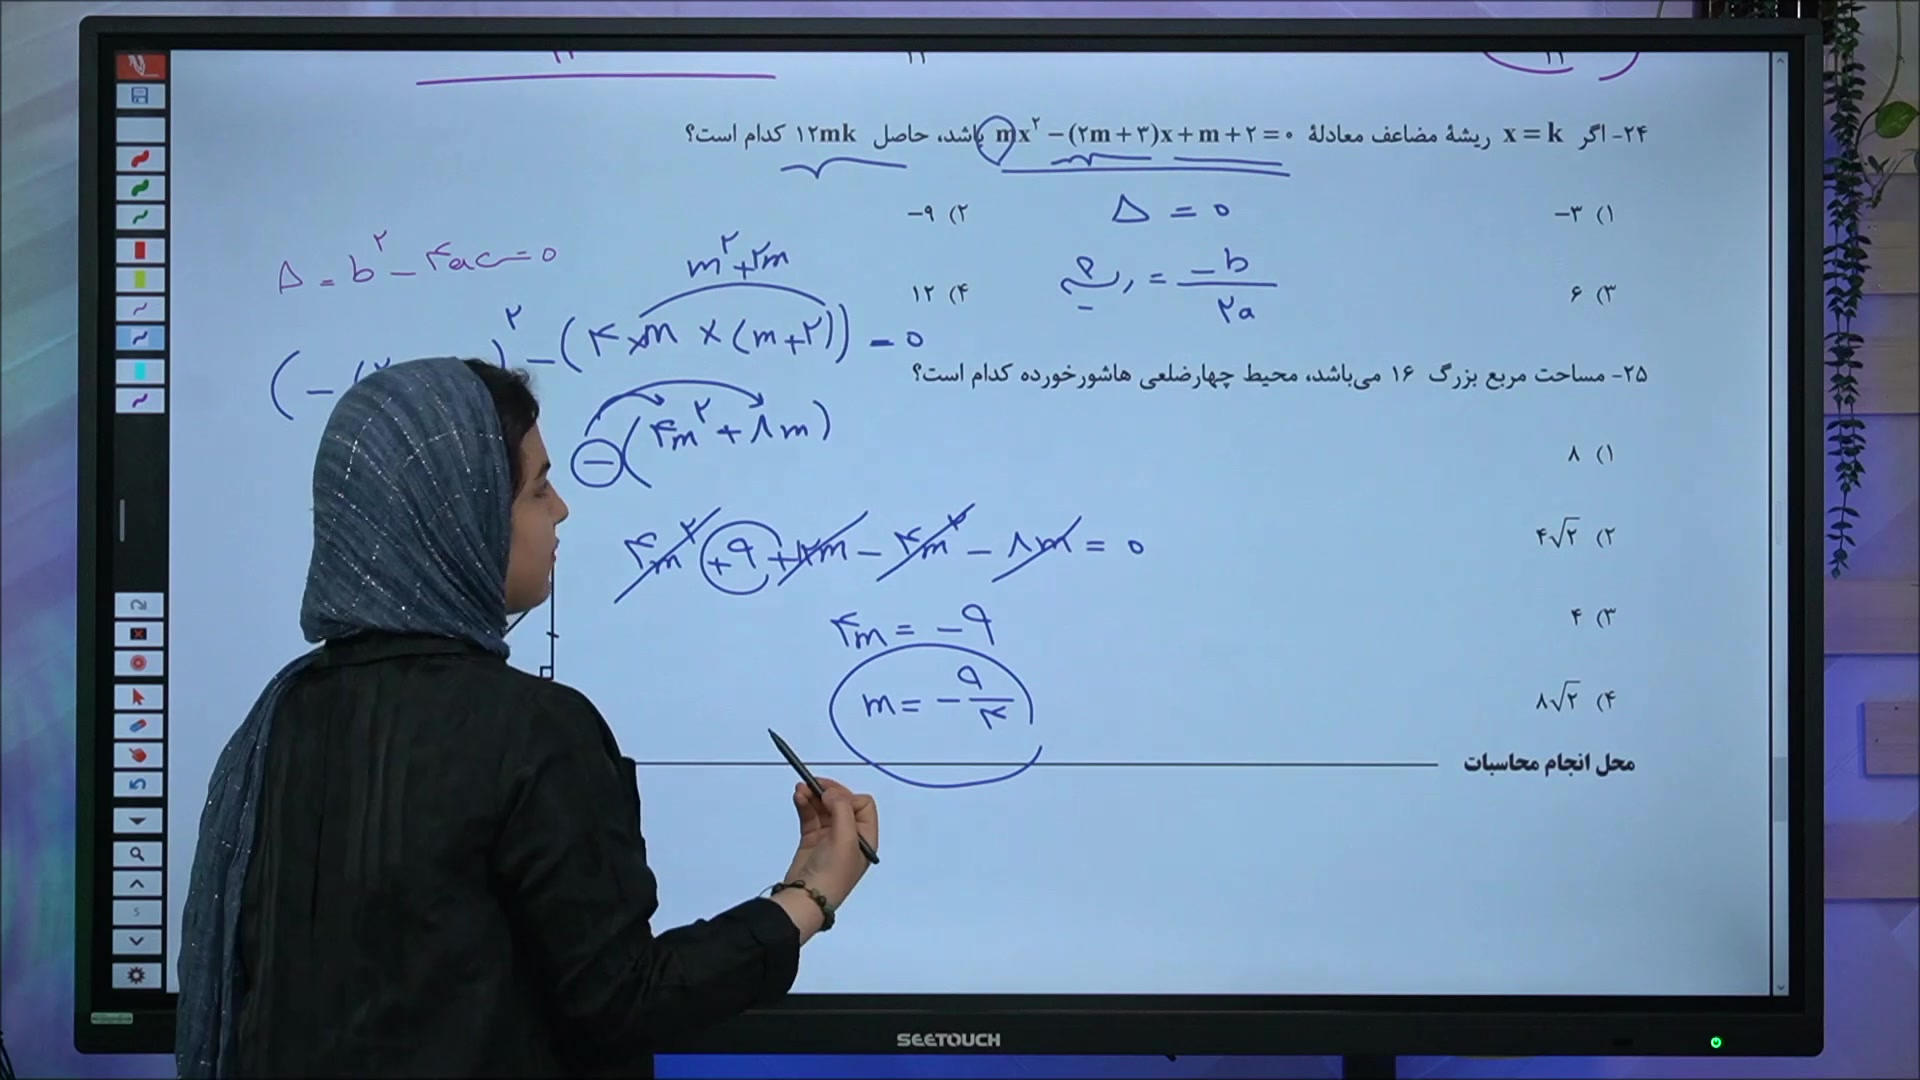 ۲۴- اگر x = k ریشهٔ مضاعف معادلهٔ mx² − (۲m + ۳)x + m + ۲ = ۰ باشد، حاصل ۱۲mk کدام است؟
۱) −۳
۲) −۹
۳) ۶
۴) ۱۲
Δ = ۰
= −b / ۲a
Δ = b² − ۴ac = ۰
m² + ۲m
)² − (۴ × m × (m + ۲)) = ۰
− (۴m² + ۸m)
۴m² + ۹ + ۱۲m − ۴m² − ۸m = ۰
۴m = −۹
m = −۹/۴
۲۵- مساحت مربع بزرگ ۱۶ می‌باشد، محیط چهارضلعی هاشورخورده کدام است؟
۱) ۸
۲) ۴√۲
۳) ۴
۴) ۸√۲
محل انجام محاسبات
SEETOUCH